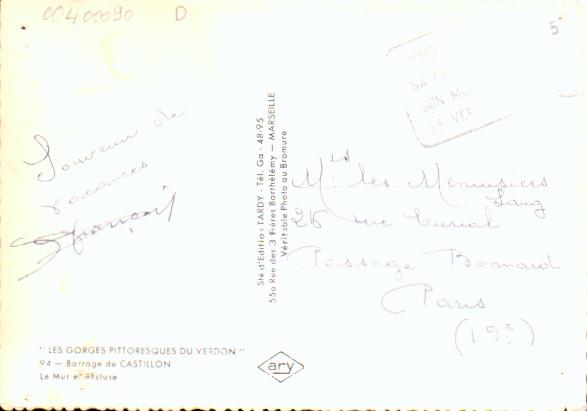 00400090 D
5
SON
LE VER
Souvenir de
vacances
Mrs les Menuisiers
26 rue
Passage Bonnard
Paris
(19e)
Sté d'Edition TARDY - Tél. Ga - 48-95
55a Rue des 3 Frères Barthélémy — MARSEILLE
Véritable Photo au Bromure
"LES GORGES PITTORESQUES DU VERDON"
94 — Barrage de CASTILLON
Le Mur et l'Ecluse
ary